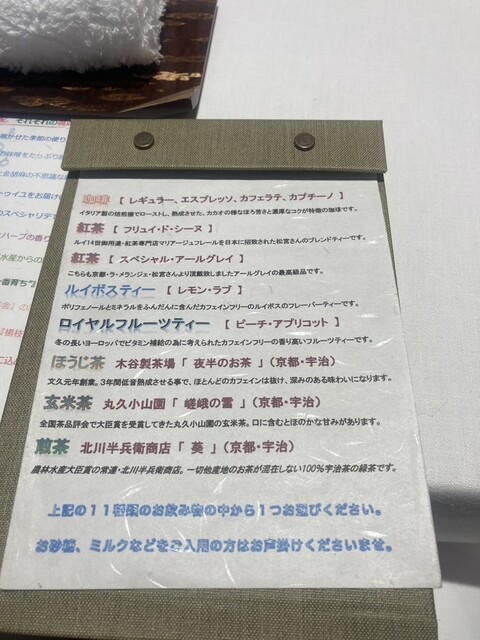 珈琲 【 レギュラー、エスプレッソ、カフェラテ、カプチーノ 】
イタリア製の焙煎機でローストし、熟成させた、カカオの様なほろ苦さと濃厚なコクが特徴の珈琲です。
紅茶 【 フリュイ・ド・シーヌ 】
ルイ14世御用達・紅茶専門店マリアージュフレールを日本に招致された松宮さんのブレンドティーです。
紅茶 【 スペシャル・アールグレイ 】
こちらも京都・ラ・メランジェ・松宮さんより頂戴致しましたアールグレイの最高級品です。
ルイボスティー 【 レモン・ラブ 】
ポリフェノールとミネラルをふんだんに含んだカフェインフリーのルイボスのフレーバーティーです。
ロイヤルフルーツティー 【 ピーチ・アプリコット 】
冬の長いヨーロッパでビタミン補給の為に考えられたカフェインフリーの香り高いフルーツティーです。
ほうじ茶 木谷製茶場「 夜半のお茶 」（京都・宇治）
文久元年創業。3年間低音熟成させる事で、ほとんどのカフェインは抜け、深みのある味わいになります。
玄米茶 丸久小山園「 嵯峨の雪 」（京都・宇治）
全国茶品評会で大臣賞を受賞してきた丸久小山園の玄米茶。口に含むとほのかな甘みがあります。
煎茶 北川半兵衛商店「 葵 」（京都・宇治）
農林水産大臣賞の常連・北川半兵衛商店。一切他産地のお茶が混在しない100％宇治茶の緑茶です。
上記の11種類のお飲み物の中から1つお選びください。
お砂糖、ミルクなどをご入用の方はお声掛けくださいませ。